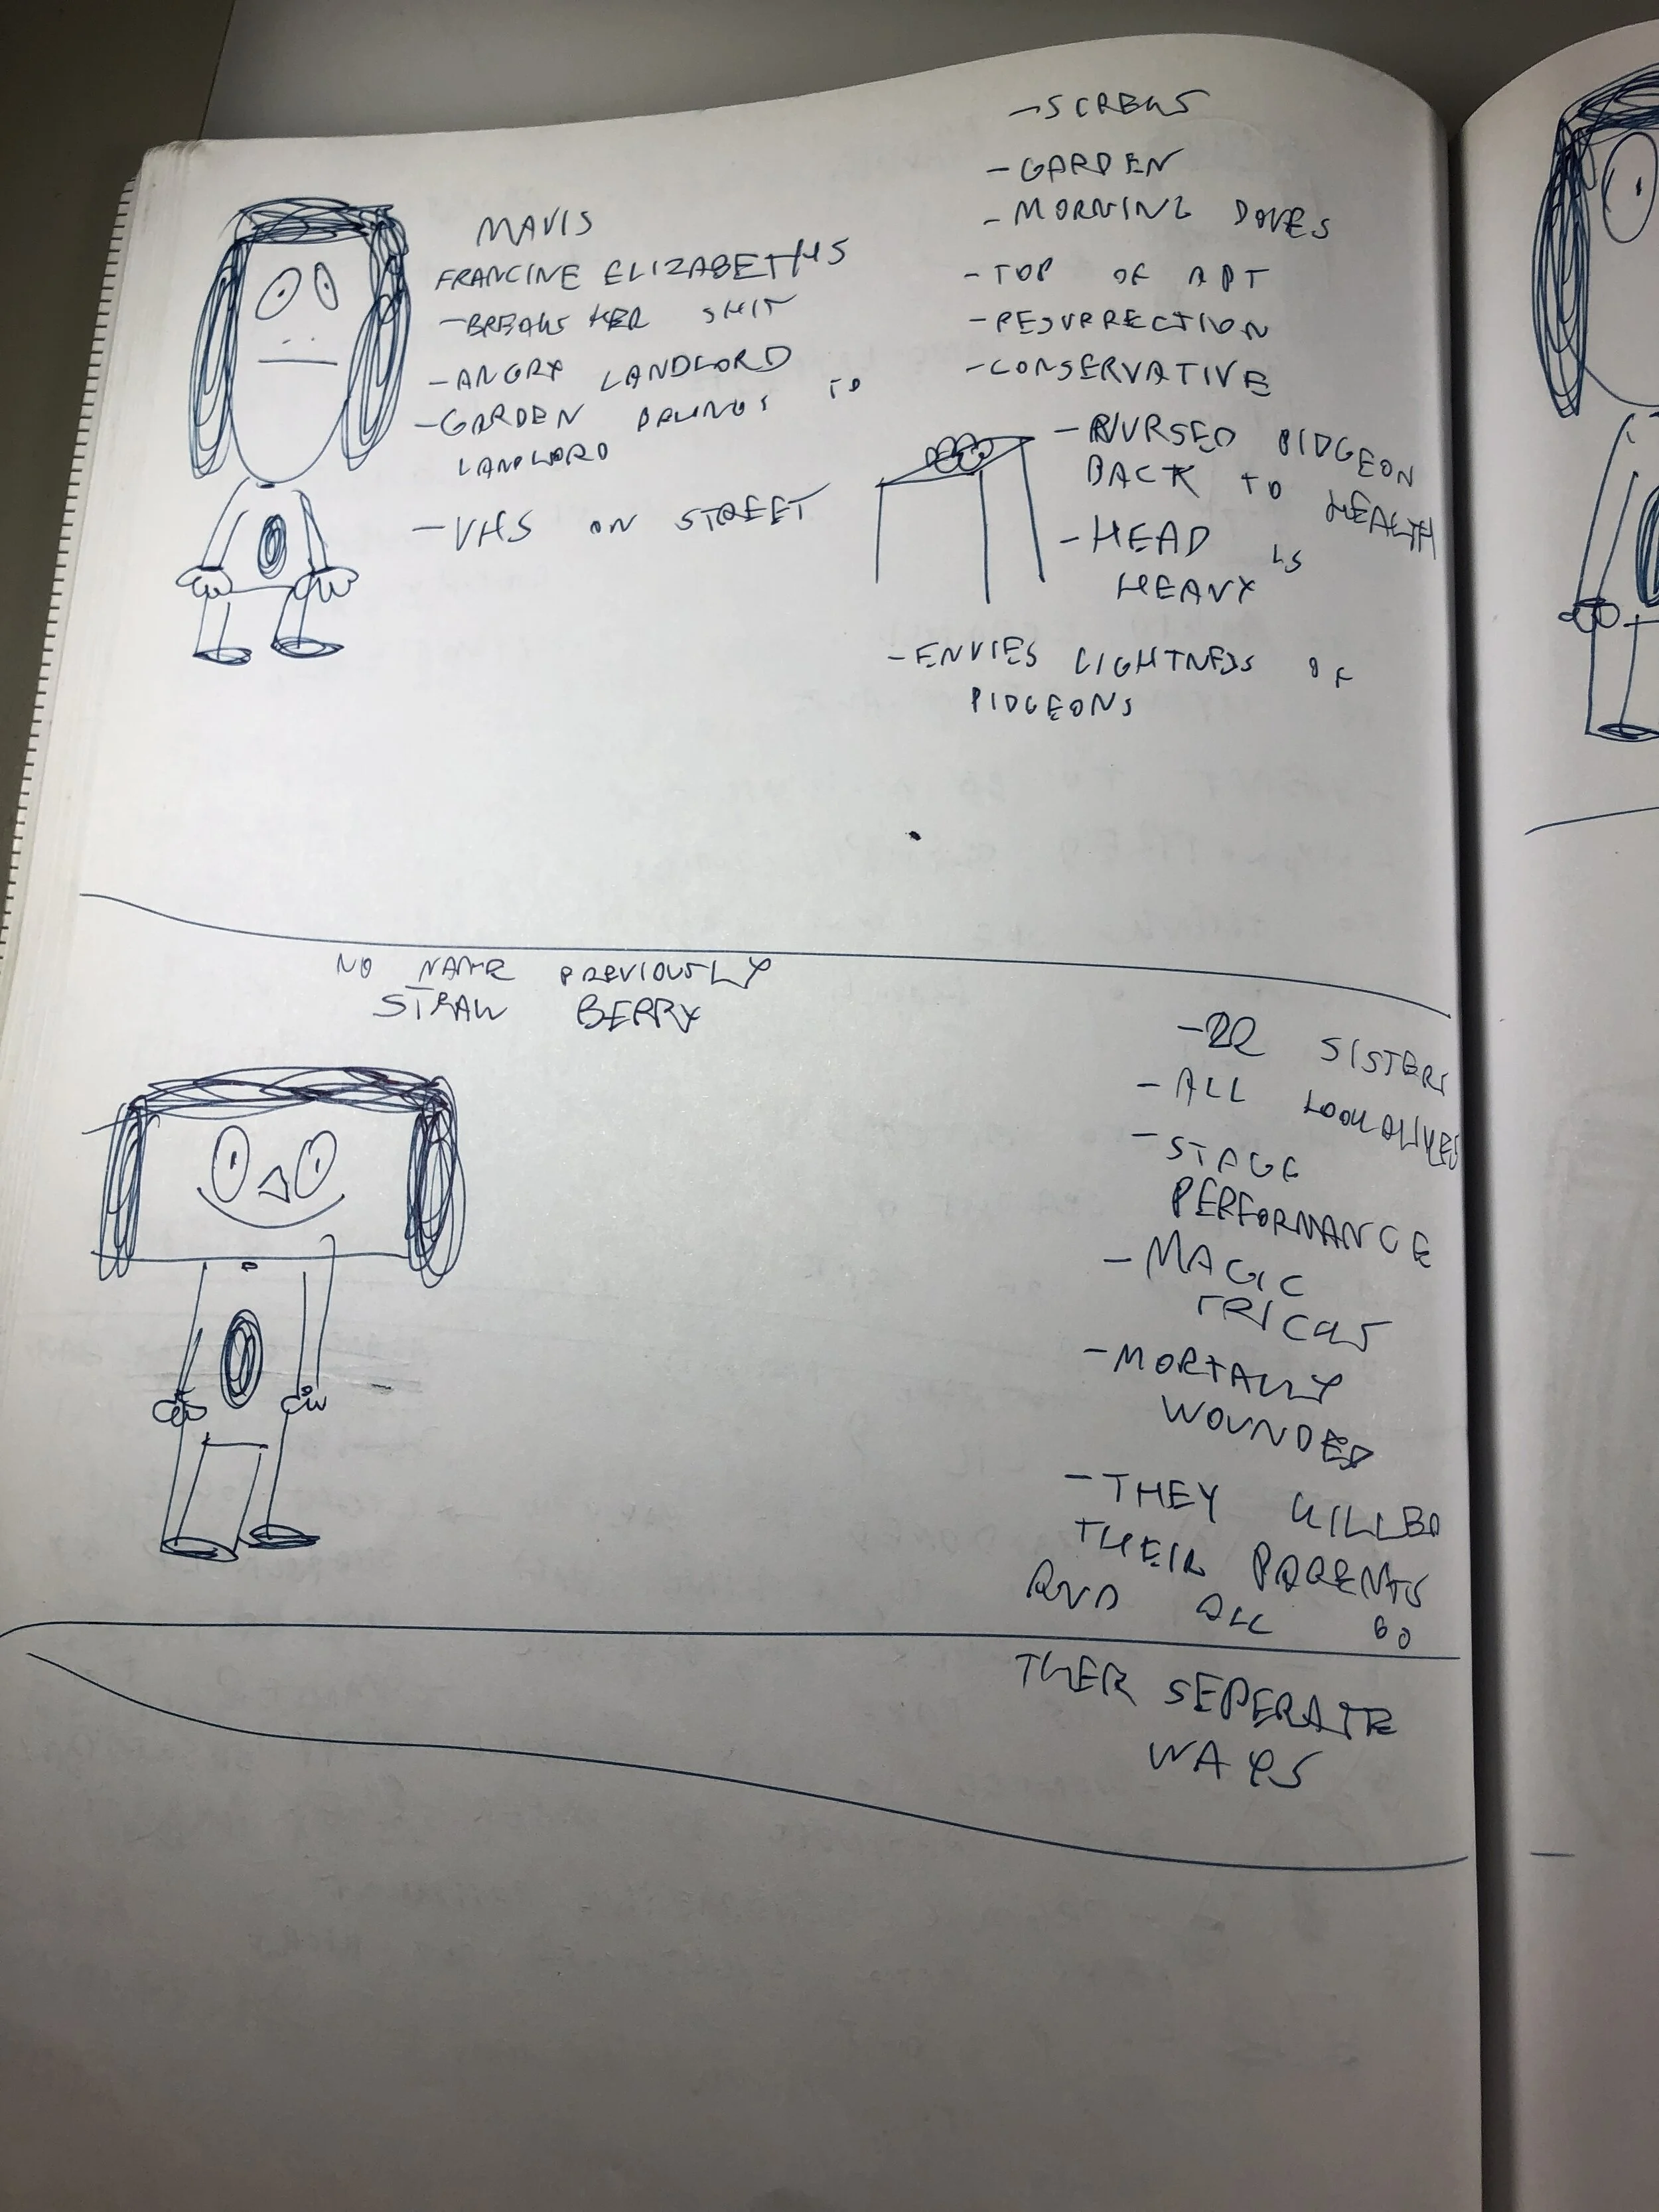 MAVIS
FRANCINE ELIZABETHS
-BREAKS HER SHIT
-ANGRY LANDLORD
-GARDEN BELONGS TO
LANDLORD
-VHS ON STREET
-SCREWS
-GARDEN
-MORNING DOVES
-TOP OF APT
-RESURRECTION
-CONSERVATIVE
-NURSED PIDGEON
BACK TO HEALTH
-HEAD IS
HEAVY
-ENVIES LIGHTNESS OF
PIDGEONS
NO NAME PREVIOUSLY
STRAW BERRY
-22 SISTERS
-ALL LOOKALIKES
-STAGE
PERFORMANCE
-MAGIC
TRICKS
-MORTALLY
WOUNDED
-THEY KILLED
THEIR PARENTS
AND ALL GO
THER SEPERATE
WAYS